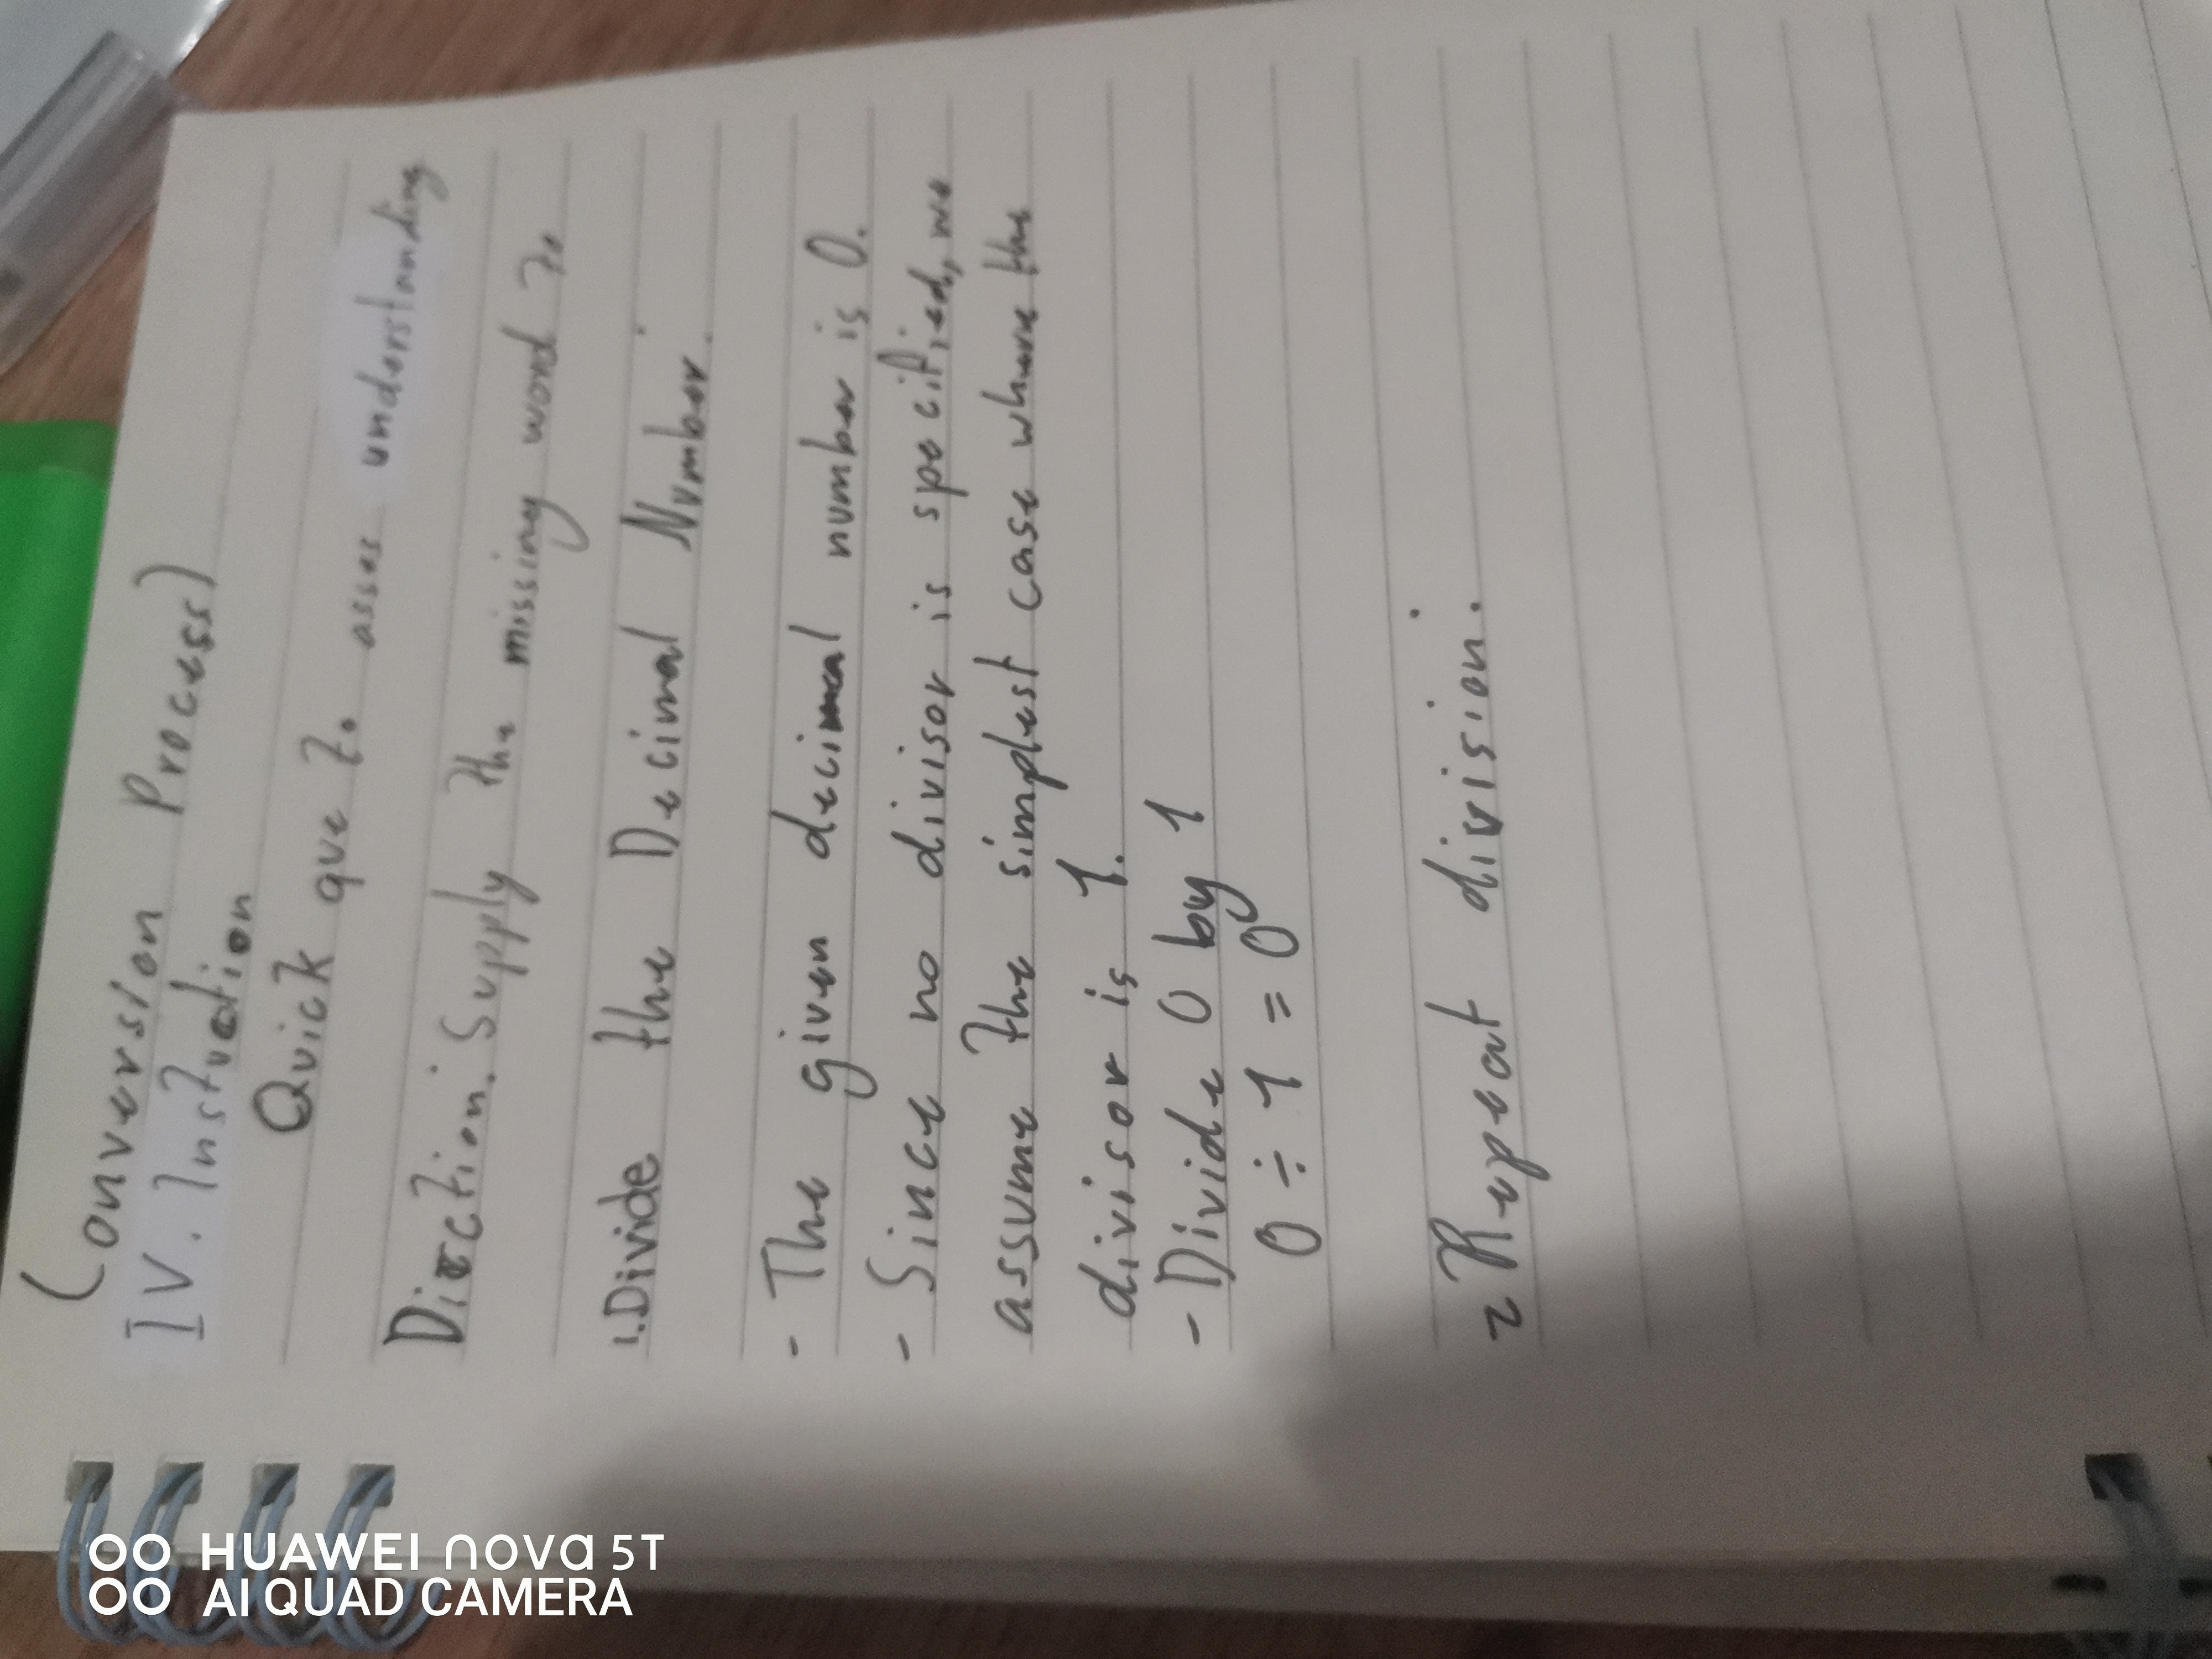 (Conversion Process)
IV. Instruction
Quick que to asses understanding
Direction. Supply the missing word to
1. Divide the Decimal Number.
- The given decimal number is 0.
- Since no divisor is specified, we
assume the simplest case where the
divisor is 1.
- Divide 0 by 1
0 ÷ 1 = 0
2 Repeat division.
HUAWEI nova 5T
AI QUAD CAMERA